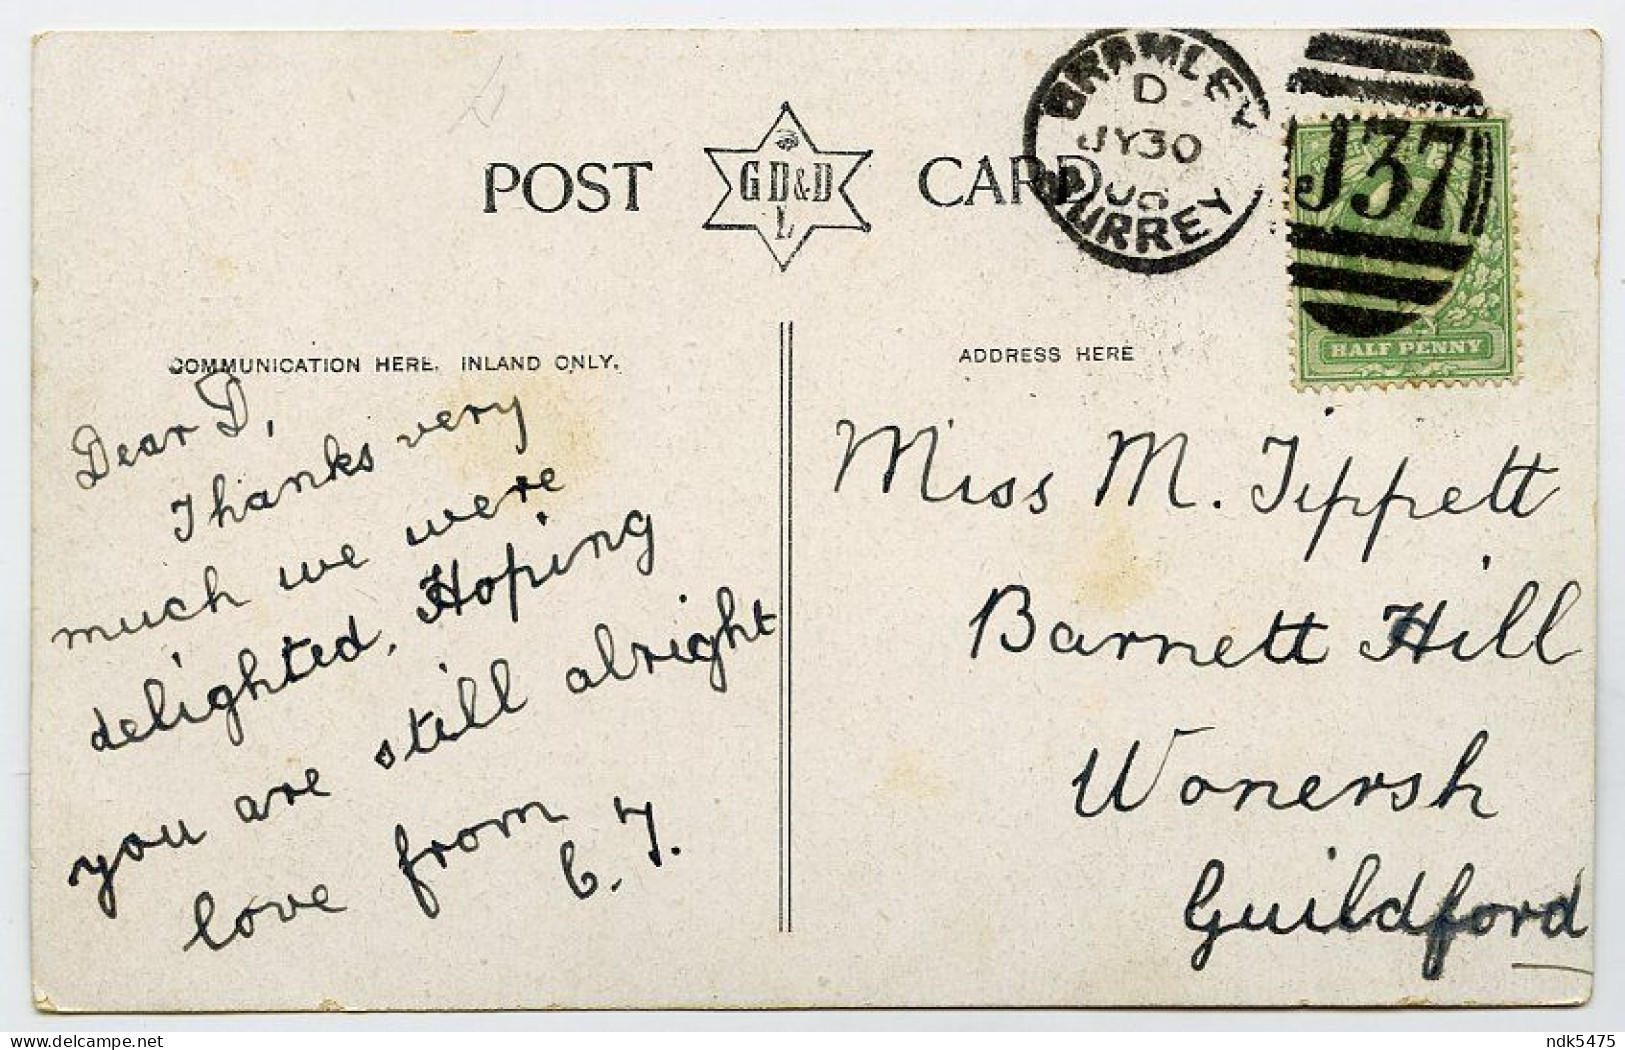 POST CARD
GD&D
L
BRAMLEY
D
JY 30
06
SURREY
J37
HALF PENNY
COMMUNICATION HERE. INLAND ONLY.
ADDRESS HERE
Dear D,
Thanks very
much we were
delighted. Hoping
you are still alright
love from
C. T.
Miss M. Tippett
Barnett Hill
Wonersh
Guildford
ndk5475